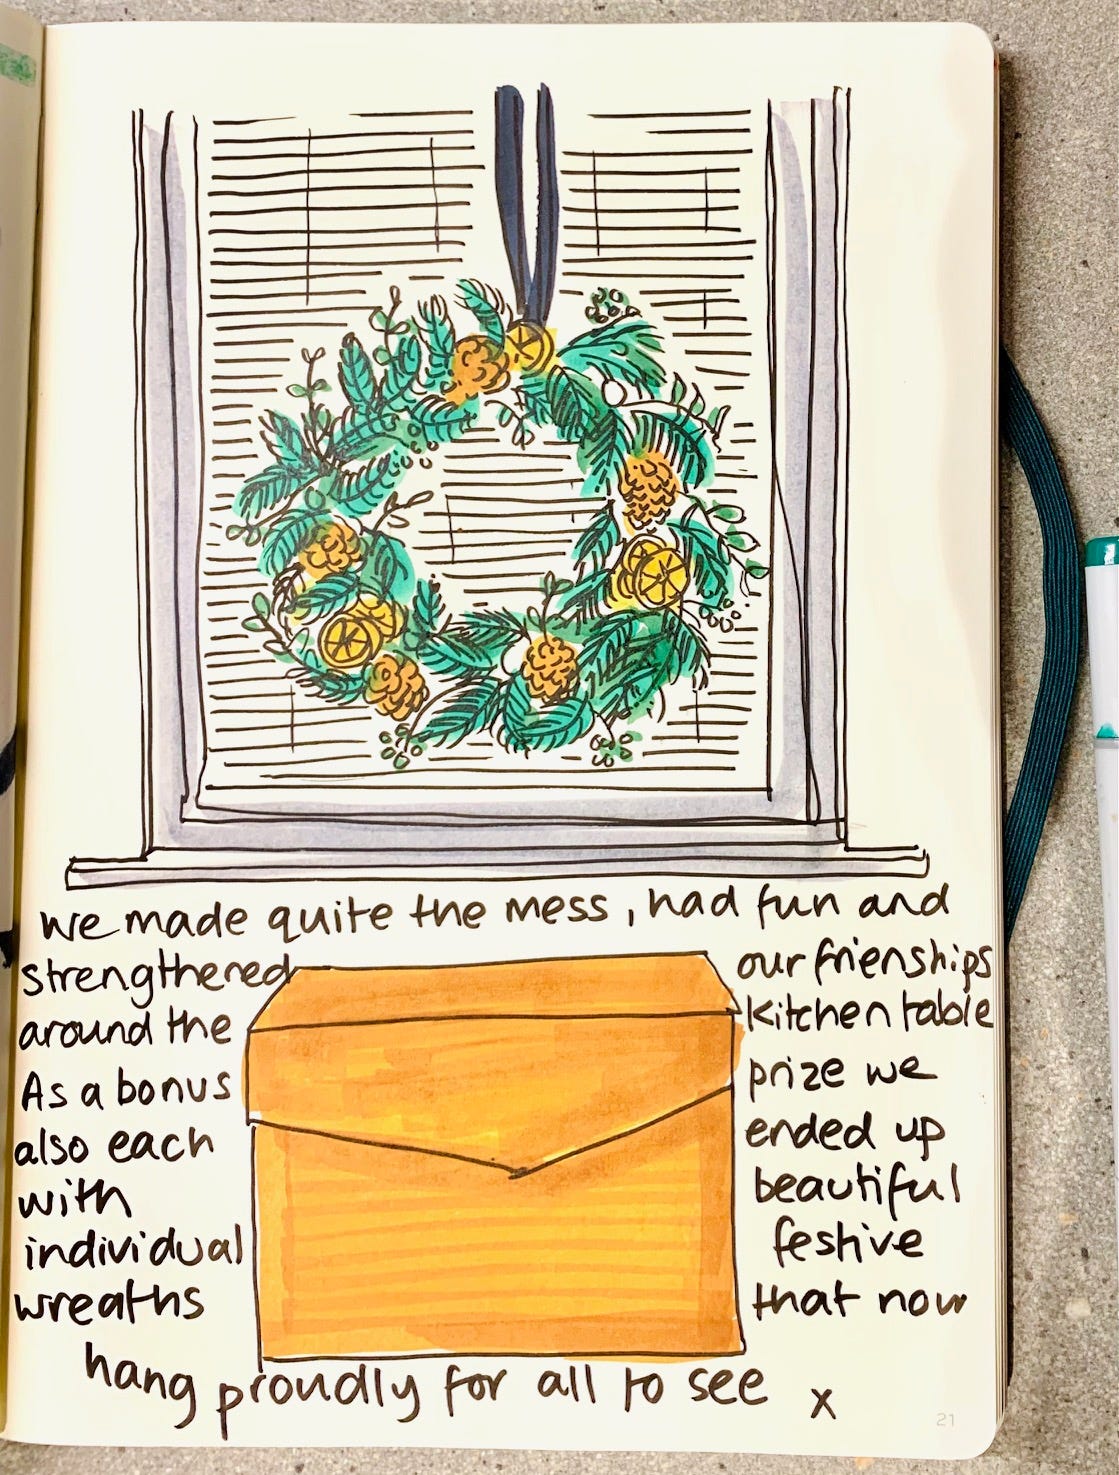 we made quite the mess, had fun and
strengthered our frienships
around the kitchen table
As a bonus prize we
also each ended up
with beautiful
individual festive
wreaths that now
hang proudly for all to see x
21